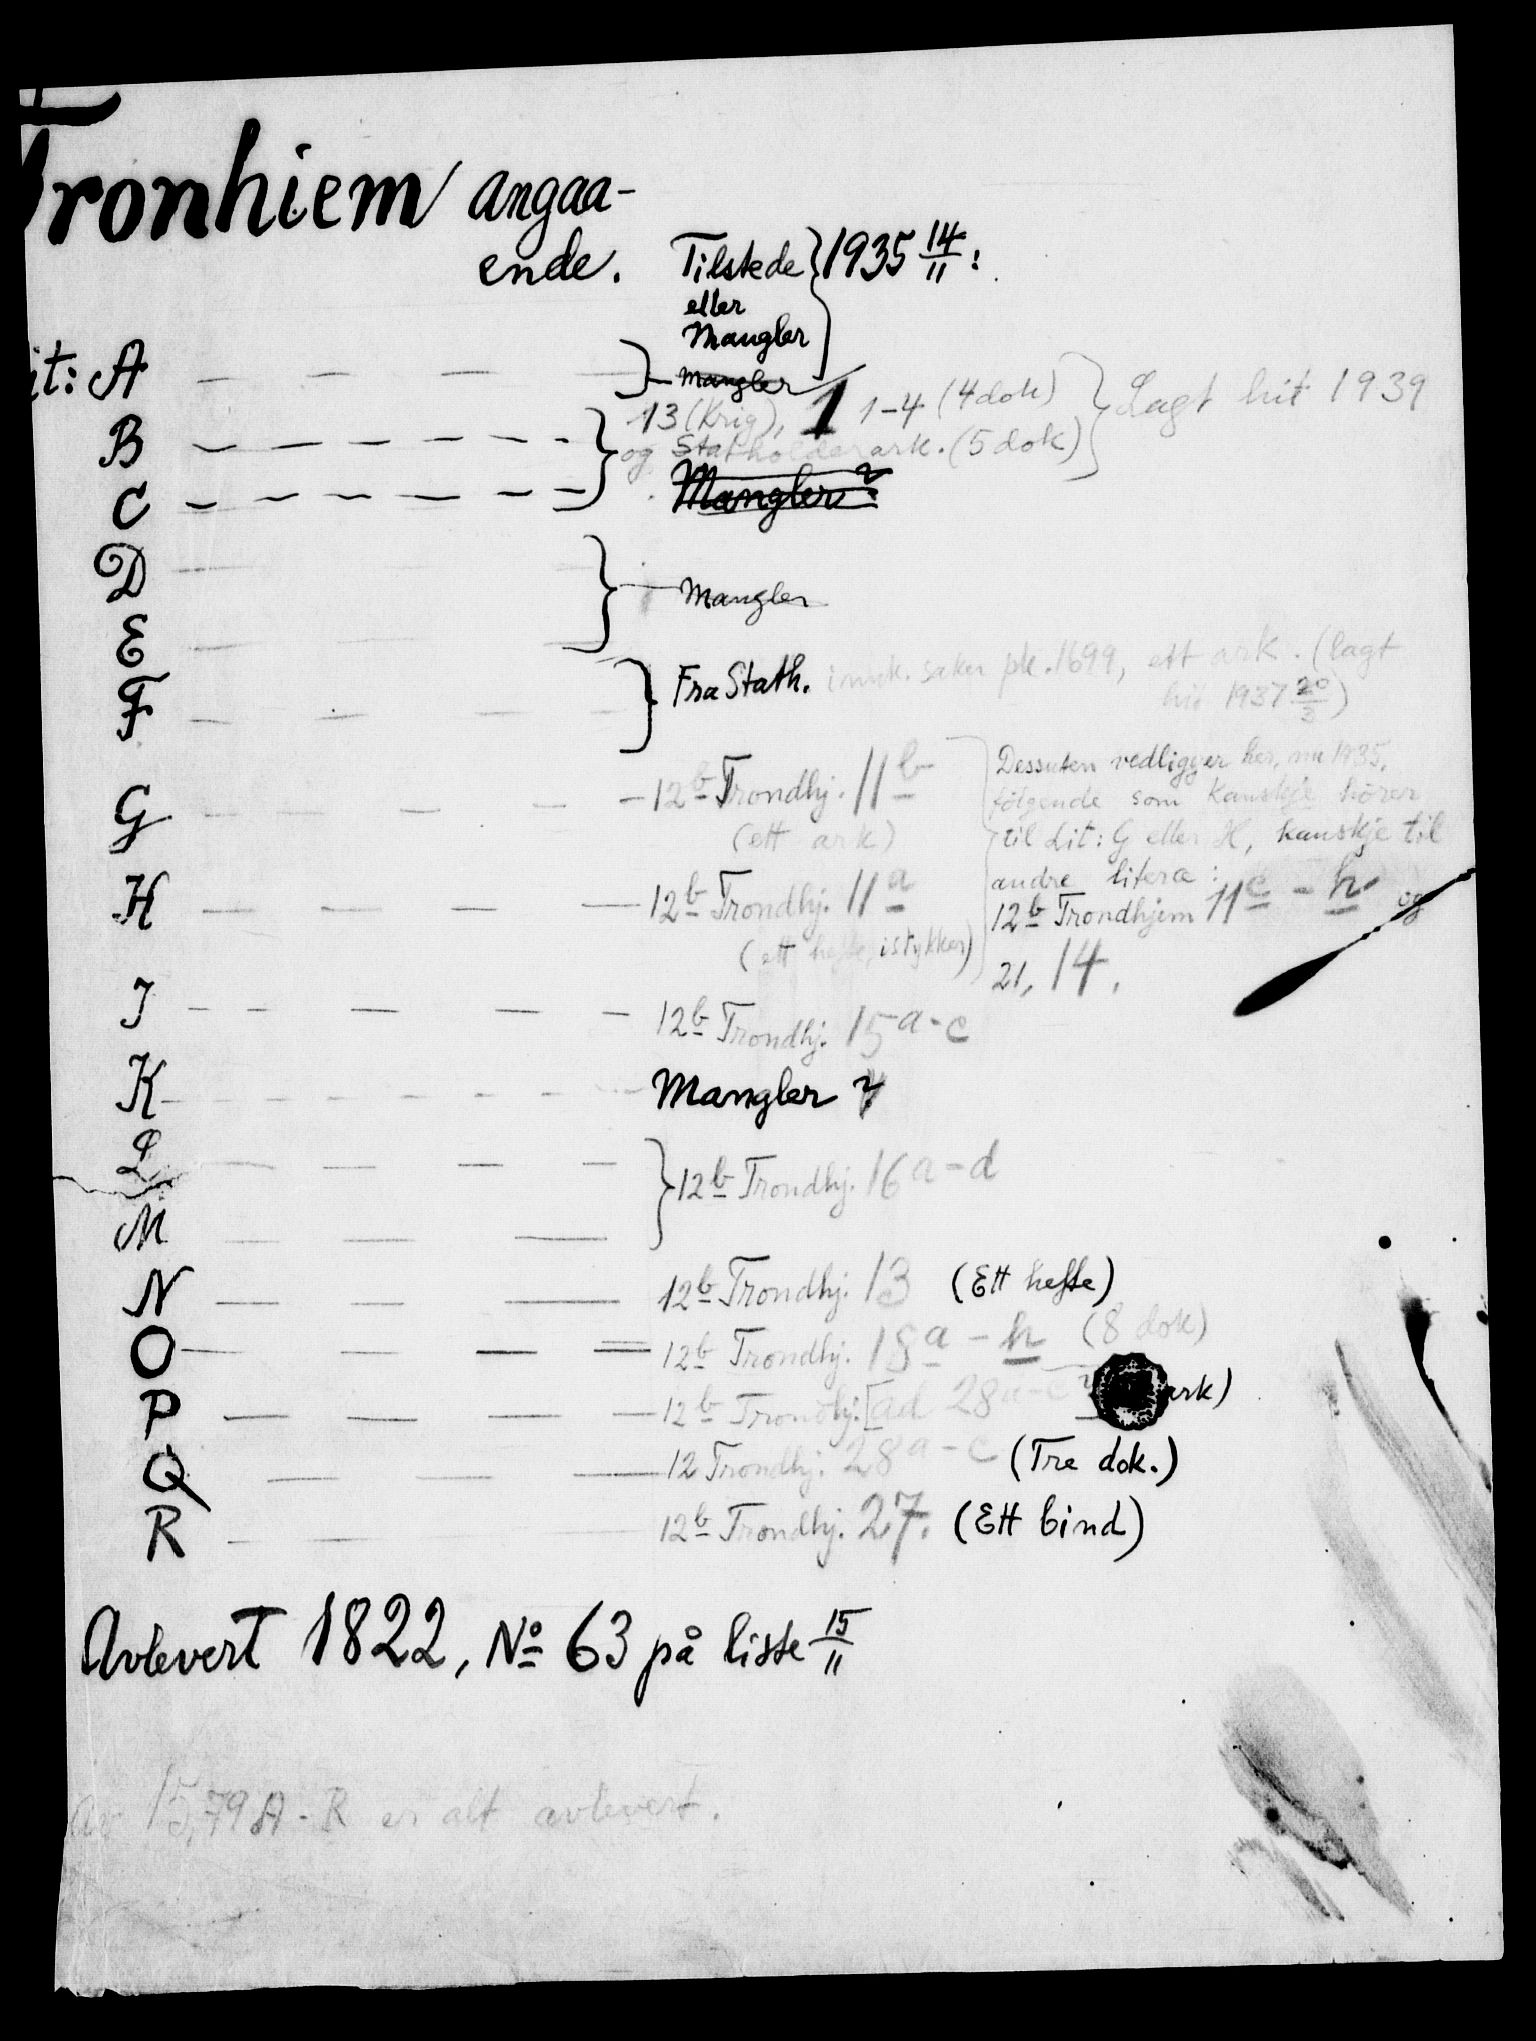 Tronhiem angaa-
ende.
Tilstede } 1935 14/11 :
eller
Mangler
Lit: A — — — } Mangler
13 (Krig), 1 1-4 (4 dok) } Lagt hit 1939
B — — — } og Statholderark. (5 dok)
C — — — Mangler ?
D — }— Mangler
E —
F — } Fra Stath. innk. saker pk. 1699, ett ark. (lagt
hit 1937 20/3)
G — — — 12b Trondhj. 11b
(ett ark)
H — — — 12b Trondhj. 11a
(ett hefte, istykker)
Dessuten vedligger her, nu 1935,
følgende som kanskje hører
til Lit: G eller H, kanskje til
andre litera :
12b Trondhjem 11c - h og
21, 14.
I — — — 12b Trondhj. 15a-c
K — — — Mangler ?
L — — — } 12b Trondhj. 16a-d
M — — —
N — — — 12b Trondhj. 13 (Ett hefte)
O — — — 12b Trondhj. 18a - h (8 dok)
P — — — 12b Trondhj. [ad 28a-c ark)
Q — — — 12 Trondhj. 28a-c (Tre dok.)
R — — 12b Trondhj. 27. (Ett bind)
Avlevert 1822, No 63 på liste 15/11
Av 15,79 A-R er alt avlevert.